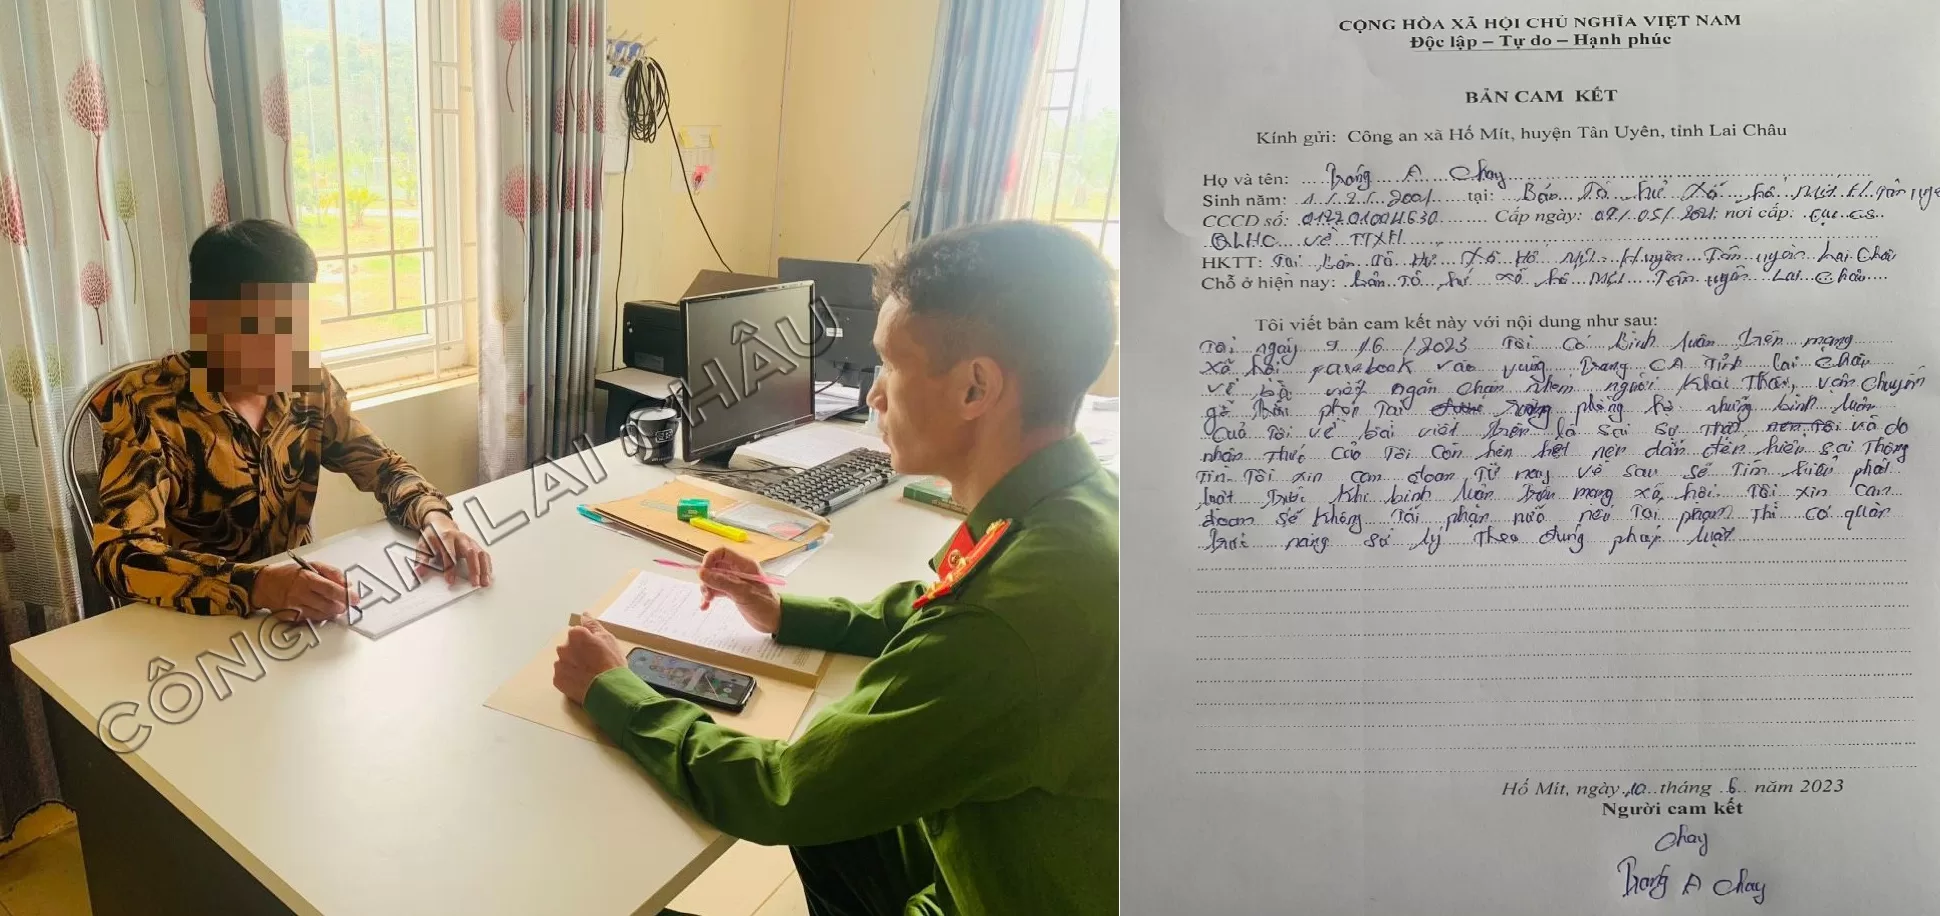 CÔNG AN LAI CHÂU
CỘNG HÒA XÃ HỘI CHỦ NGHĨA VIỆT NAM
Độc lập – Tự do – Hạnh phúc
BẢN CAM KẾT
Kính gửi: Công an xã Hố Mít, huyện Tân Uyên, tỉnh Lai Châu
Họ và tên: A Chay
Sinh năm: 1/2/2001 tại: Bản Tô
CCCD số: Cấp ngày: nơi cấp: cục cs
QLHC về TTXH
HKTT: Tại bản Tô Hố Mít Huyện Tân uyên Lai Châu
Chỗ ở hiện nay: bản Tô hố Mít Tân uyên Lai Châu
Tôi viết bản cam kết này với nội dung như sau:
Tôi ngày 9/6/2023 Tôi có bình luận trên mạng
xã hội facebook vào Trang CA Tỉnh lai châu
về bài viết ngăn chặn nhóm người khai Thác, vận chuyển
gỗ
của Tôi về bài viết trên là sai sự Thật và do
nhận Thức của Tôi còn hạn dẫn đến hiểu sai Thông
Tin Tôi xin cam đoan Từ nay về sau sẽ Tìm hiểu pháp
luật trước khi bình luận trên mạng xã hội. Tôi xin cam
đoan sẽ không Tái phạm nữa nếu Tái phạm Thì cơ quan
sử lý Theo đúng pháp luật
Hố Mít, ngày 10 tháng 6 năm 2023
Người cam kết
Chay
A Chay